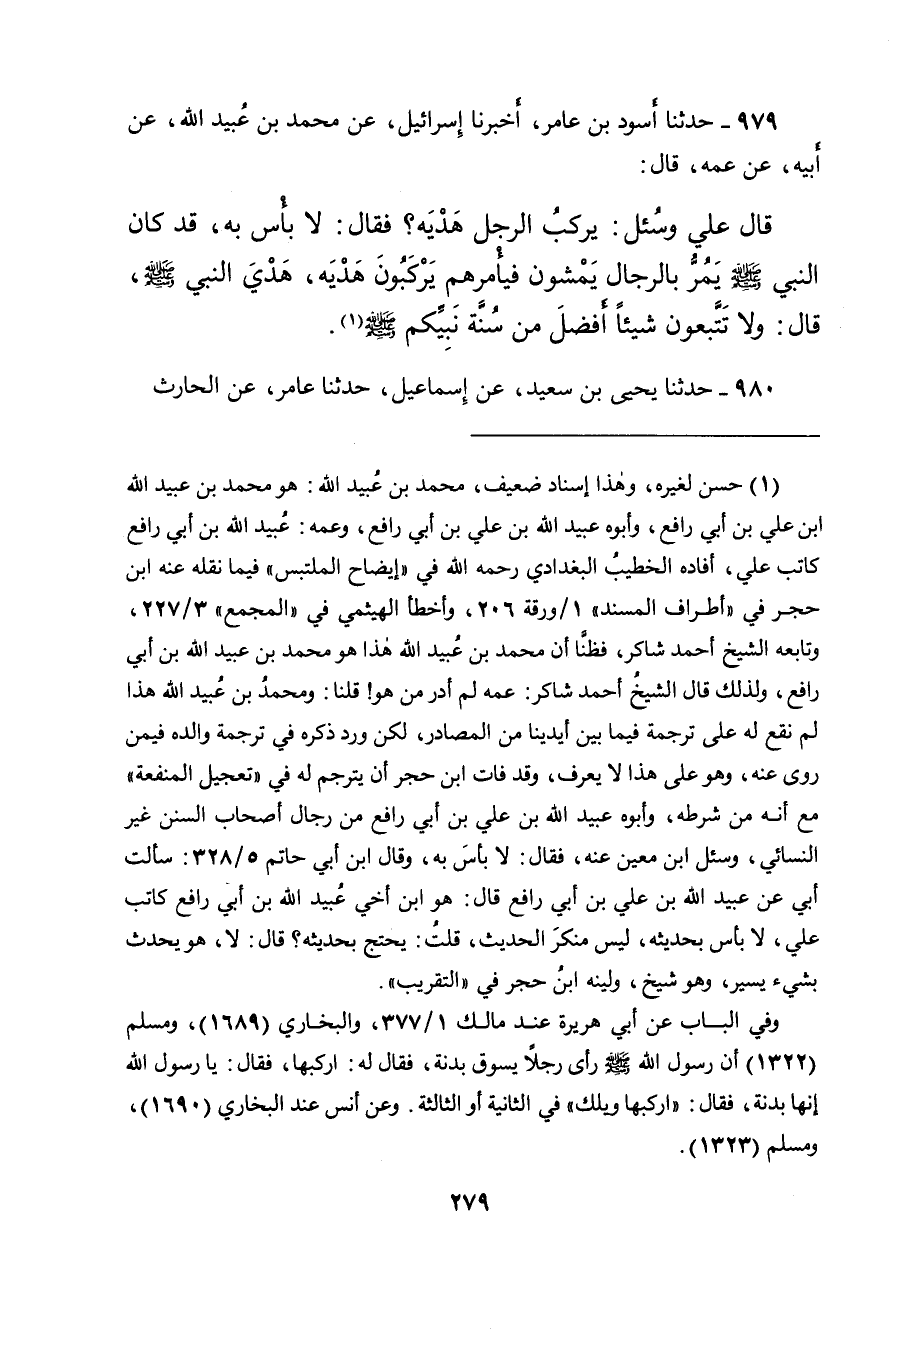 ٩٧٩ ـ حدثنا أَسود بن عامر، أَخبرنا إسرائيل، عن محمد بن عُبيد الله، عن
أَبيه، عن عمه، قال:
قال علي وسُئل: يركبُ الرجل هَدْيَه؟ فقال: لا بأْس به، قد كان
النبي ﷺ يَمُرُّ بالرجال يَمْشون فيأْمرهم يَرْكَبُونَ هَدْيَه، هَدْيَ النبي ﷺ،
قال: ولا تَتَّبعون شيئاً أَفضلَ من سُنَّة نَبِيِّكم ﷺ(١).
٩٨٠ ـ حدثنا يحيى بن سعيد، عن إسماعيل، حدثنا عامر، عن الحارث
(١) حسن لغيره، وهٰذا إسناد ضعيف، محمد بن عُبيد الله: هو محمد بن عبيد الله
ابن علي بن أبي رافع، وأبوه عبيد الله بن علي بن أبي رافع، وعمه: عُبيد الله بن أبي رافع
كاتب علي، أفاده الخطيبُ البغدادي رحمه الله في «إيضاح الملتبس» فيما نقله عنه ابن
حجر في «أطراف المسند» ١/ورقة ٢٠٦، وأخطأ الهيثمي في «المجمع» ٢٢٧/٣،
وتابعه الشيخ أحمد شاكر، فظنَّا أن محمد بن عُبيد الله هٰذا هو محمد بن عبيد الله بن أبي
رافع، ولذلك قال الشيخُ أحمد شاكر: عمه لم أدر من هو! قلنا: ومحمدُ بن عُبيد الله هذا
لم نقع له على ترجمة فيما بين أيدينا من المصادر، لكن ورد ذكره في ترجمة والده فيمن
روى عنه، وهو على هذا لا يعرف، وقد فات ابن حجر أن يترجم له في «تعجيل المنفعة»
مع أنه من شرطه، وأبوه عبيد الله بن علي بن أبي رافع من رجال أصحاب السنن غير
النسائي، وسئل ابن معين عنه، فقال: لا بأسَ به، وقال ابن أبي حاتم ٣٢٨/٥: سألت
أبي عن عبيد الله بن علي بن أبي رافع قال: هو ابن أخي عُبيد الله بن أبي رافع كاتب
علي، لا بأس بحديثه، ليس منكرَ الحديث، قلتُ: يحتج بحديثه؟ قال: لا، هو يحدث
بشيء يسير، وهو شيخ، ولينه ابنُ حجر في «التقريب».
وفي الباب عن أبي هريرة عند مالك ٣٧٧/١، والبخاري (١٦٨٩)، ومسلم
(١٣٢٢) أن رسول الله ﷺ رأى رجلاً يسوق بدنة، فقال له: اركبها، فقال: يا رسول الله
إنها بدنة، فقال: «اركبها ويلك» في الثانية أو الثالثة. وعن أنس عند البخاري (١٦٩٠)،
ومسلم (١٣٢٣).
٢٧٩